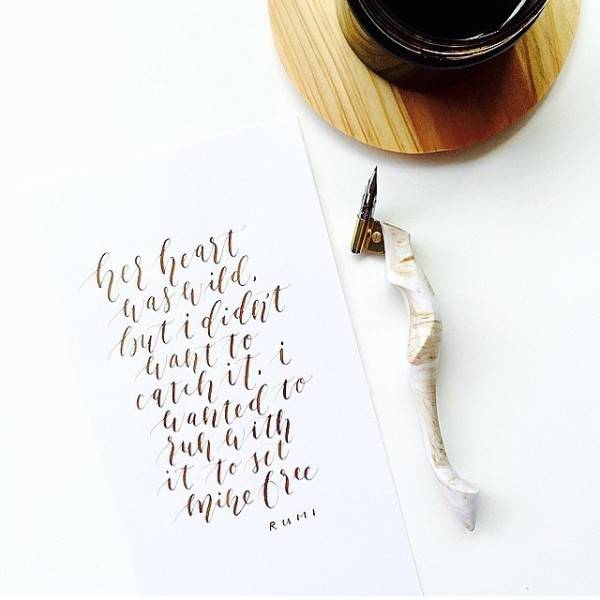 her heart
was wild,
but i didn't
want to
catch it. i
wanted to
run with
it to set
mine free
RUMI